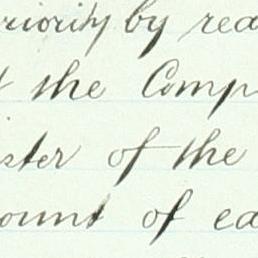 riority by rea
t the Comp
ster of the
ount of ea